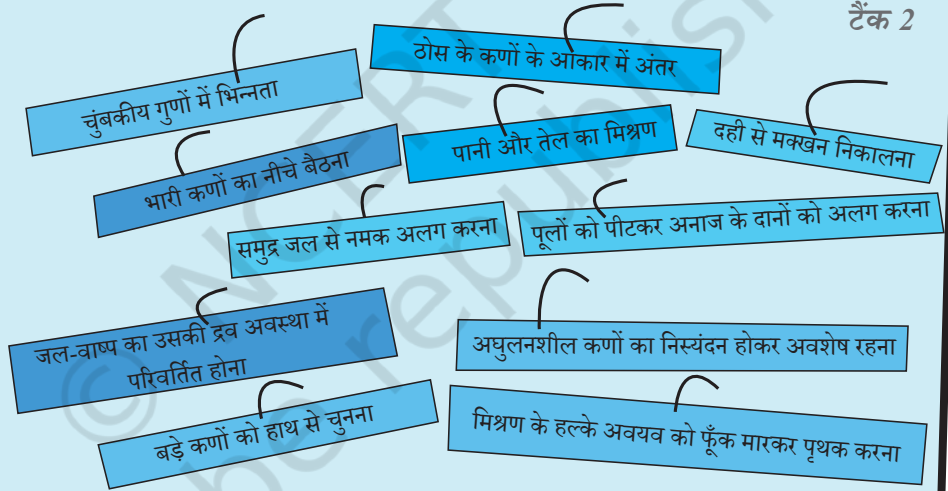 टैंक 2
ठोस के कणों के आकार में अंतर
चुंबकीय गुणों में भिन्नता
पानी और तेल का मिश्रण
दही से मक्खन निकालना
भारी कणों का नीचे बैठना
समुद्र जल से नमक अलग करना
पूलों को पीटकर अनाज के दानों को अलग करना
जल-वाष्प का उसकी द्रव अवस्था में
परिवर्तित होना
अघुलनशील कणों का निस्यंदन होकर अवशेष रहना
बड़े कणों को हाथ से चुनना
मिश्रण के हल्के अवयव को फूँक मारकर पृथक करना
© NCERT
be republish